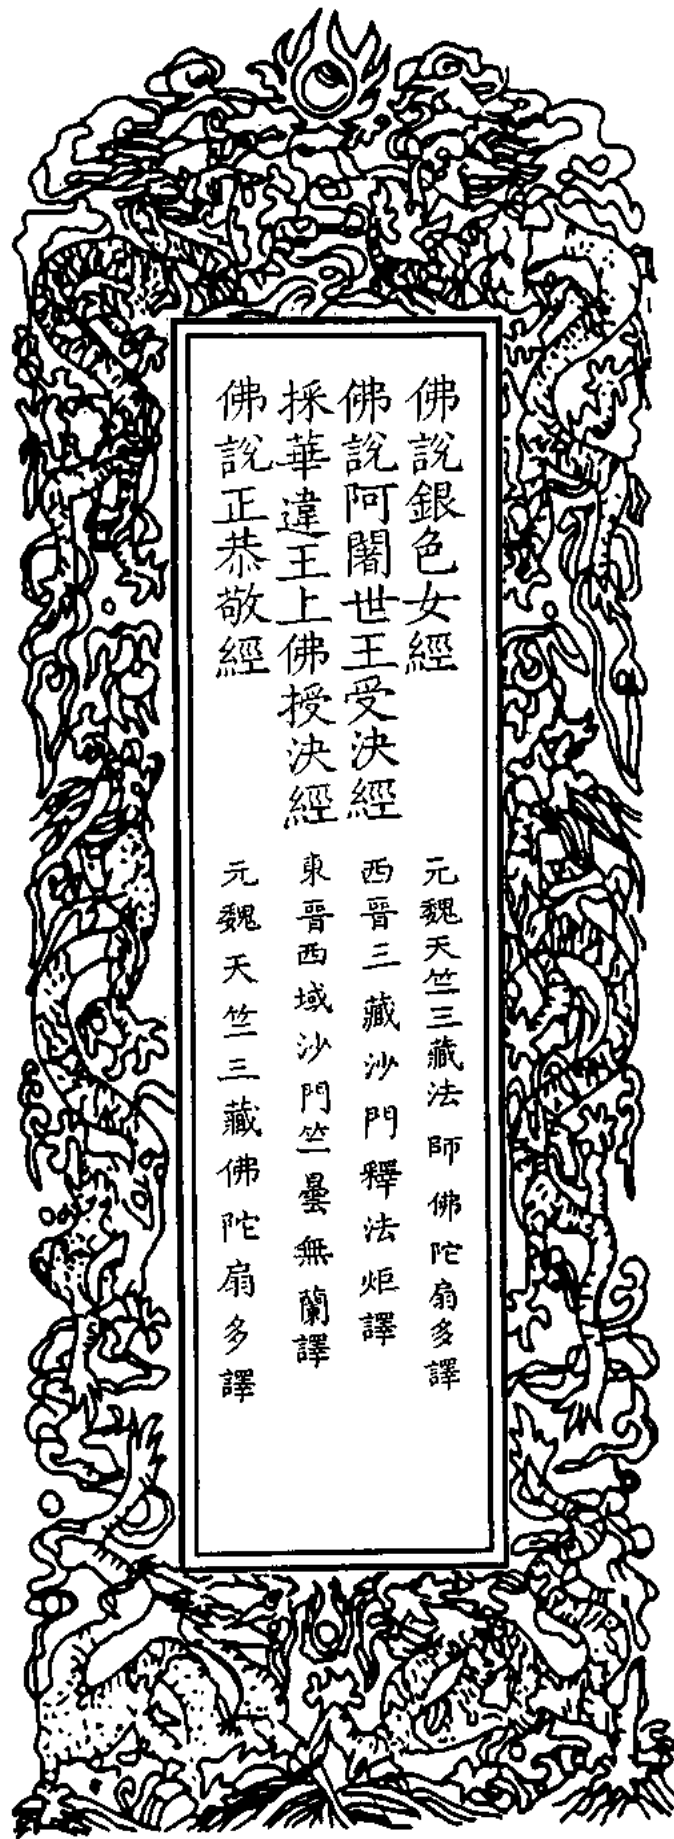 佛說銀色女經　元魏天竺三藏法師佛陀扇多譯
佛說阿闍世王受決經　西晉三藏沙門釋法炬譯
採華違王上佛授決經　東晉西域沙門竺曇無蘭譯
佛說正恭敬經　元魏天竺三藏佛陀扇多譯